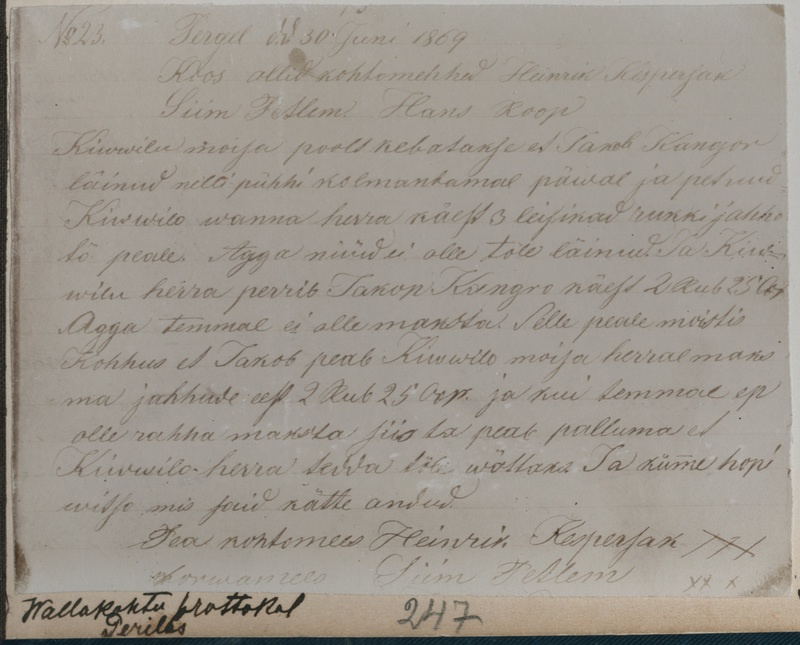 No 23. Pergel d. 30. Juni 1869
Koos ollid kohtomehhed Heinrik Kespersak
Siim Petlem. Hans Koop
Kiwwilu moisa poolt kebatakse et Jakob Kangor
läinud nelli pühhi kolmandamal päwal ja petnud
Kiwwilo wanna herra käest 3 leisikad rukki jahho
tö peale. Agga nüüd ei olle töle läinud. Ja Kiwi-
wilu herra perrib Jakop Kangro käest 2 Rub 25 Cop
Agga temmal ei olle maksta. Selle peale moistis
Kohhus et Jakob peab Kiwwilo moisa herral maks
ma jahhude eest 2 Rub 25 Cop. ja kui temmal ep
olle rahha maksta siis ta peab palluma et
Kiwwilo herra tedda töle wöttaks Ja kümme hopi
witso mis said kätte andud.
Pea kohtomees Heinrik Kespersak XXX
Korwamees Siim Petlem xx x
Wallakohtu prottokol
Perillas
247